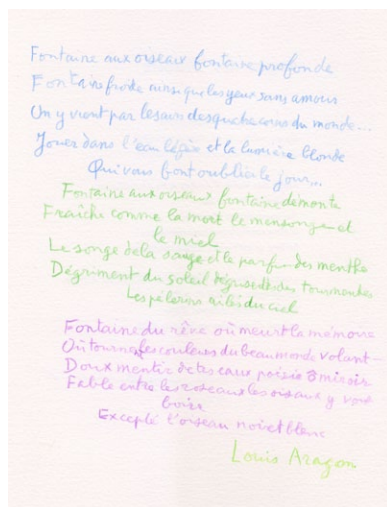 Fontaine aux oiseaux fontaine profonde
Fontaine froide ainsi que les yeux sans amour
On y vient par les airs des quatre coins du monde...
Jouer dans l'eau légère et la lumière blonde
Qui vous font oublier le jour...
Fontaine aux oiseaux fontaine démonte
Fraîche comme la mort le mensonge et
le miel
Le songe de la sauge et le parfum des menthe
du soleil des tourmentes
Les pèlerins ailés du ciel
Fontaine du rêve où meurt la mémoire
Où tournent les couleurs du beau monde volant -
Doux mentir de tes eaux poésie ô miroir
Fable entre les roseaux les oiseaux y vont
boire
Excepté l'oiseau noir et blanc
Louis Aragon